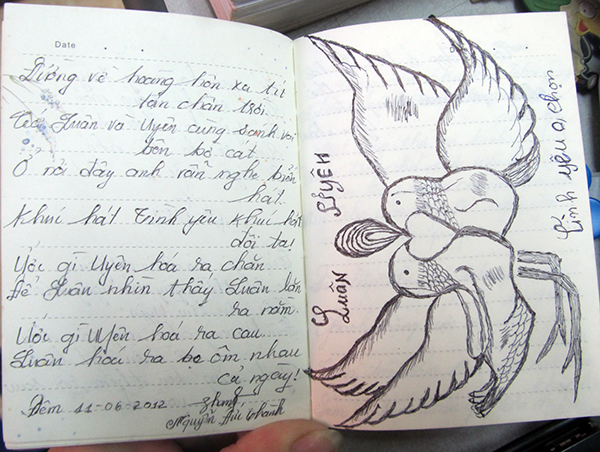 Date
Đường về hoàng hôn xa tít
tận chân trời
Có Luân và Uyên cùng sánh vai
bên bờ cát
Ở nơi đây anh vẫn nghe biển
hát
Khúc hát tình yêu khúc hát
đôi ta!
Ước gì Uyên hoá ra chăn
Để Luân nhìn thấy Luân lăn
ra nằm.
Ước gì Uyên hoá ra cau
Luân hoá ra bẹ ôm nhau
cả ngày!
Đêm 11-06-2012
Nguyễn Đức
LUÂN UYÊN
tình yêu
chọn